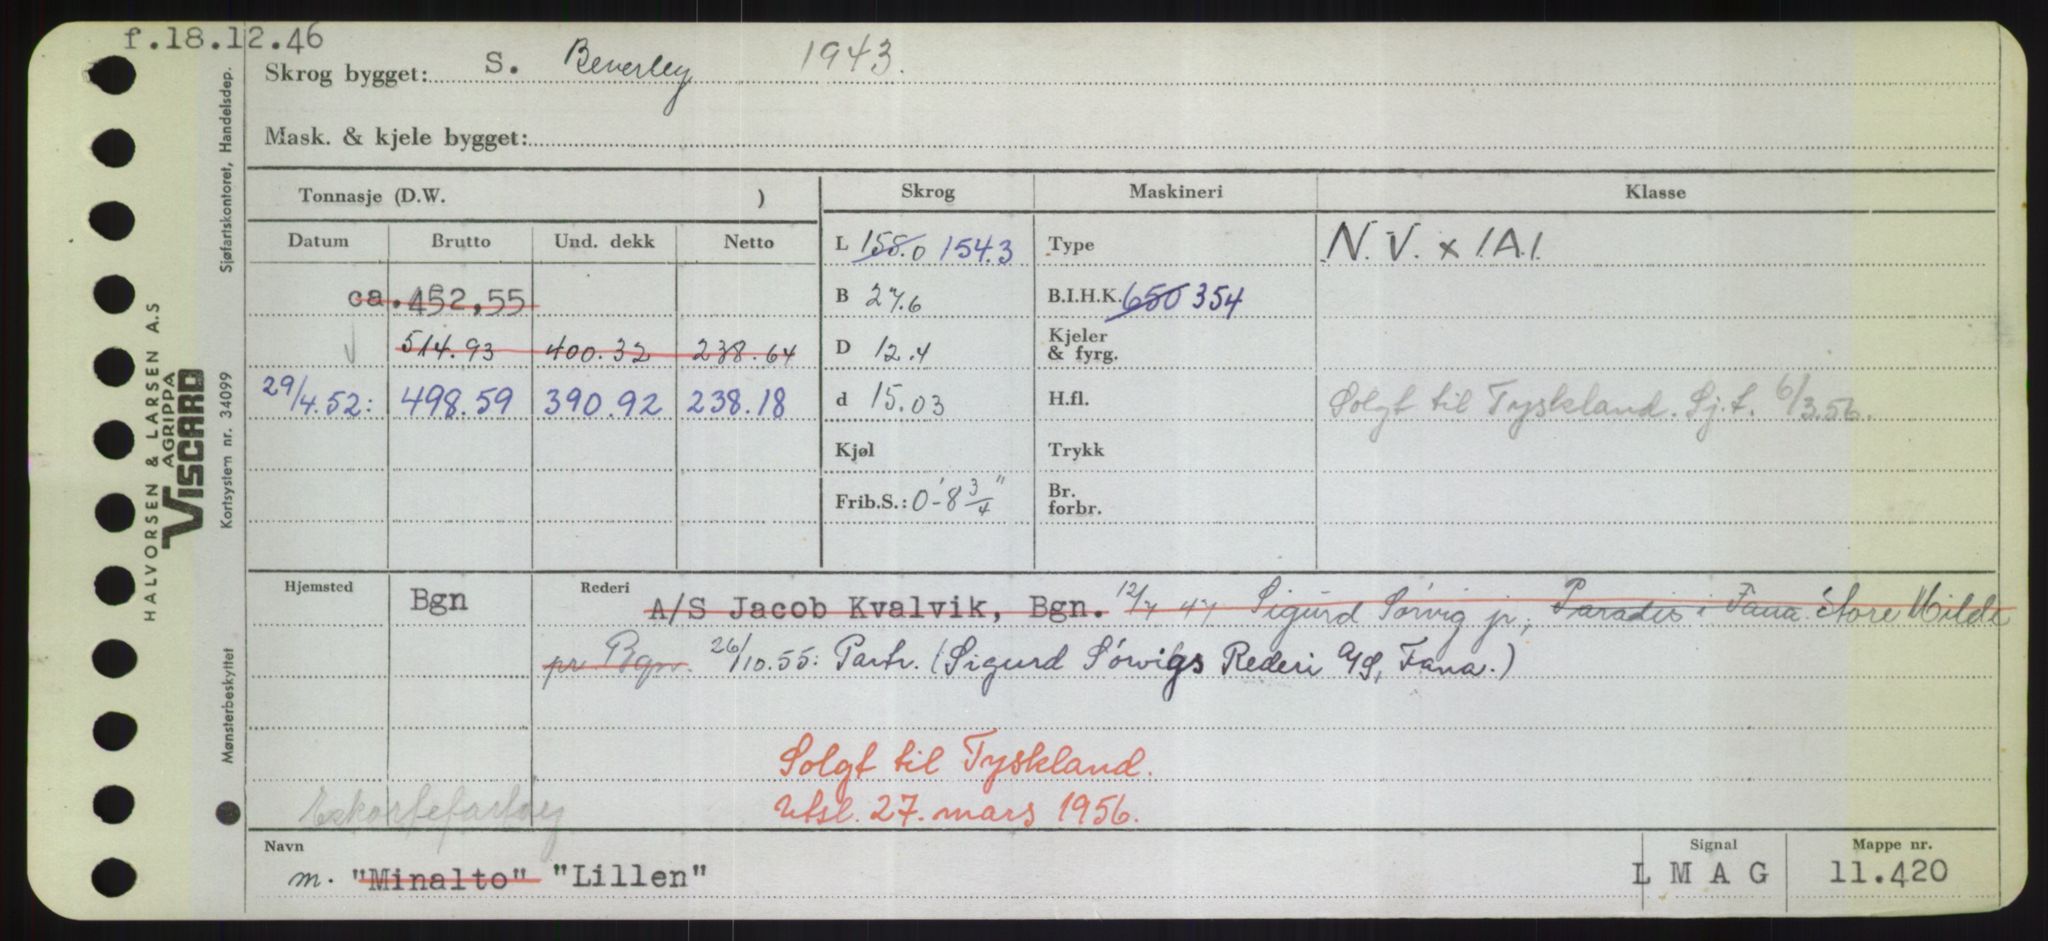 f.18.12.46
Skrog bygget: S. Beverley 1943.
Mask. & kjele bygget:
Tonnasje (D.W. ) Skrog Maskineri Klasse
Datum Brutto Und. dekk Netto L 158.0 154.3 Type N.V. x 1.A.1.
ca. 452,55 B 27.6 B.I.H.K. 650 354
514.93 400.32 238.64 D 12.4 Kjeler & fyrg.
29/4.52: 498.59 390.92 238.18 d 15.03 H.fl. Solgt til Tyskland. Sj.t. 6/3.56.
Kjøl Trykk
Frib.S.: 0'-8 3/4" Br. forbr.
Hjemsted Bgn Rederi A/S Jacob Kvalvik, Bgn. 12/7 47 Sigurd Sørvig jr, Paradis i Fana. Store Milde
pr Bgn. 26/10.55: Partr. (Sigurd Sørvigs Rederi A/S, Fana.)
Solgt til Tyskland.
Utsl. 27. mars 1956.
Eskortefartøy
Navn Signal Mappe nr.
m. "Minalto" "Lillen" L M A G 11.420
Sjøfartskontoret, Handelsdep.
Kortsystem nr. 34099
Mønsterbeskyttet
HALVORSEN & LARSEN A.S
AGRIPPA
VISCARD